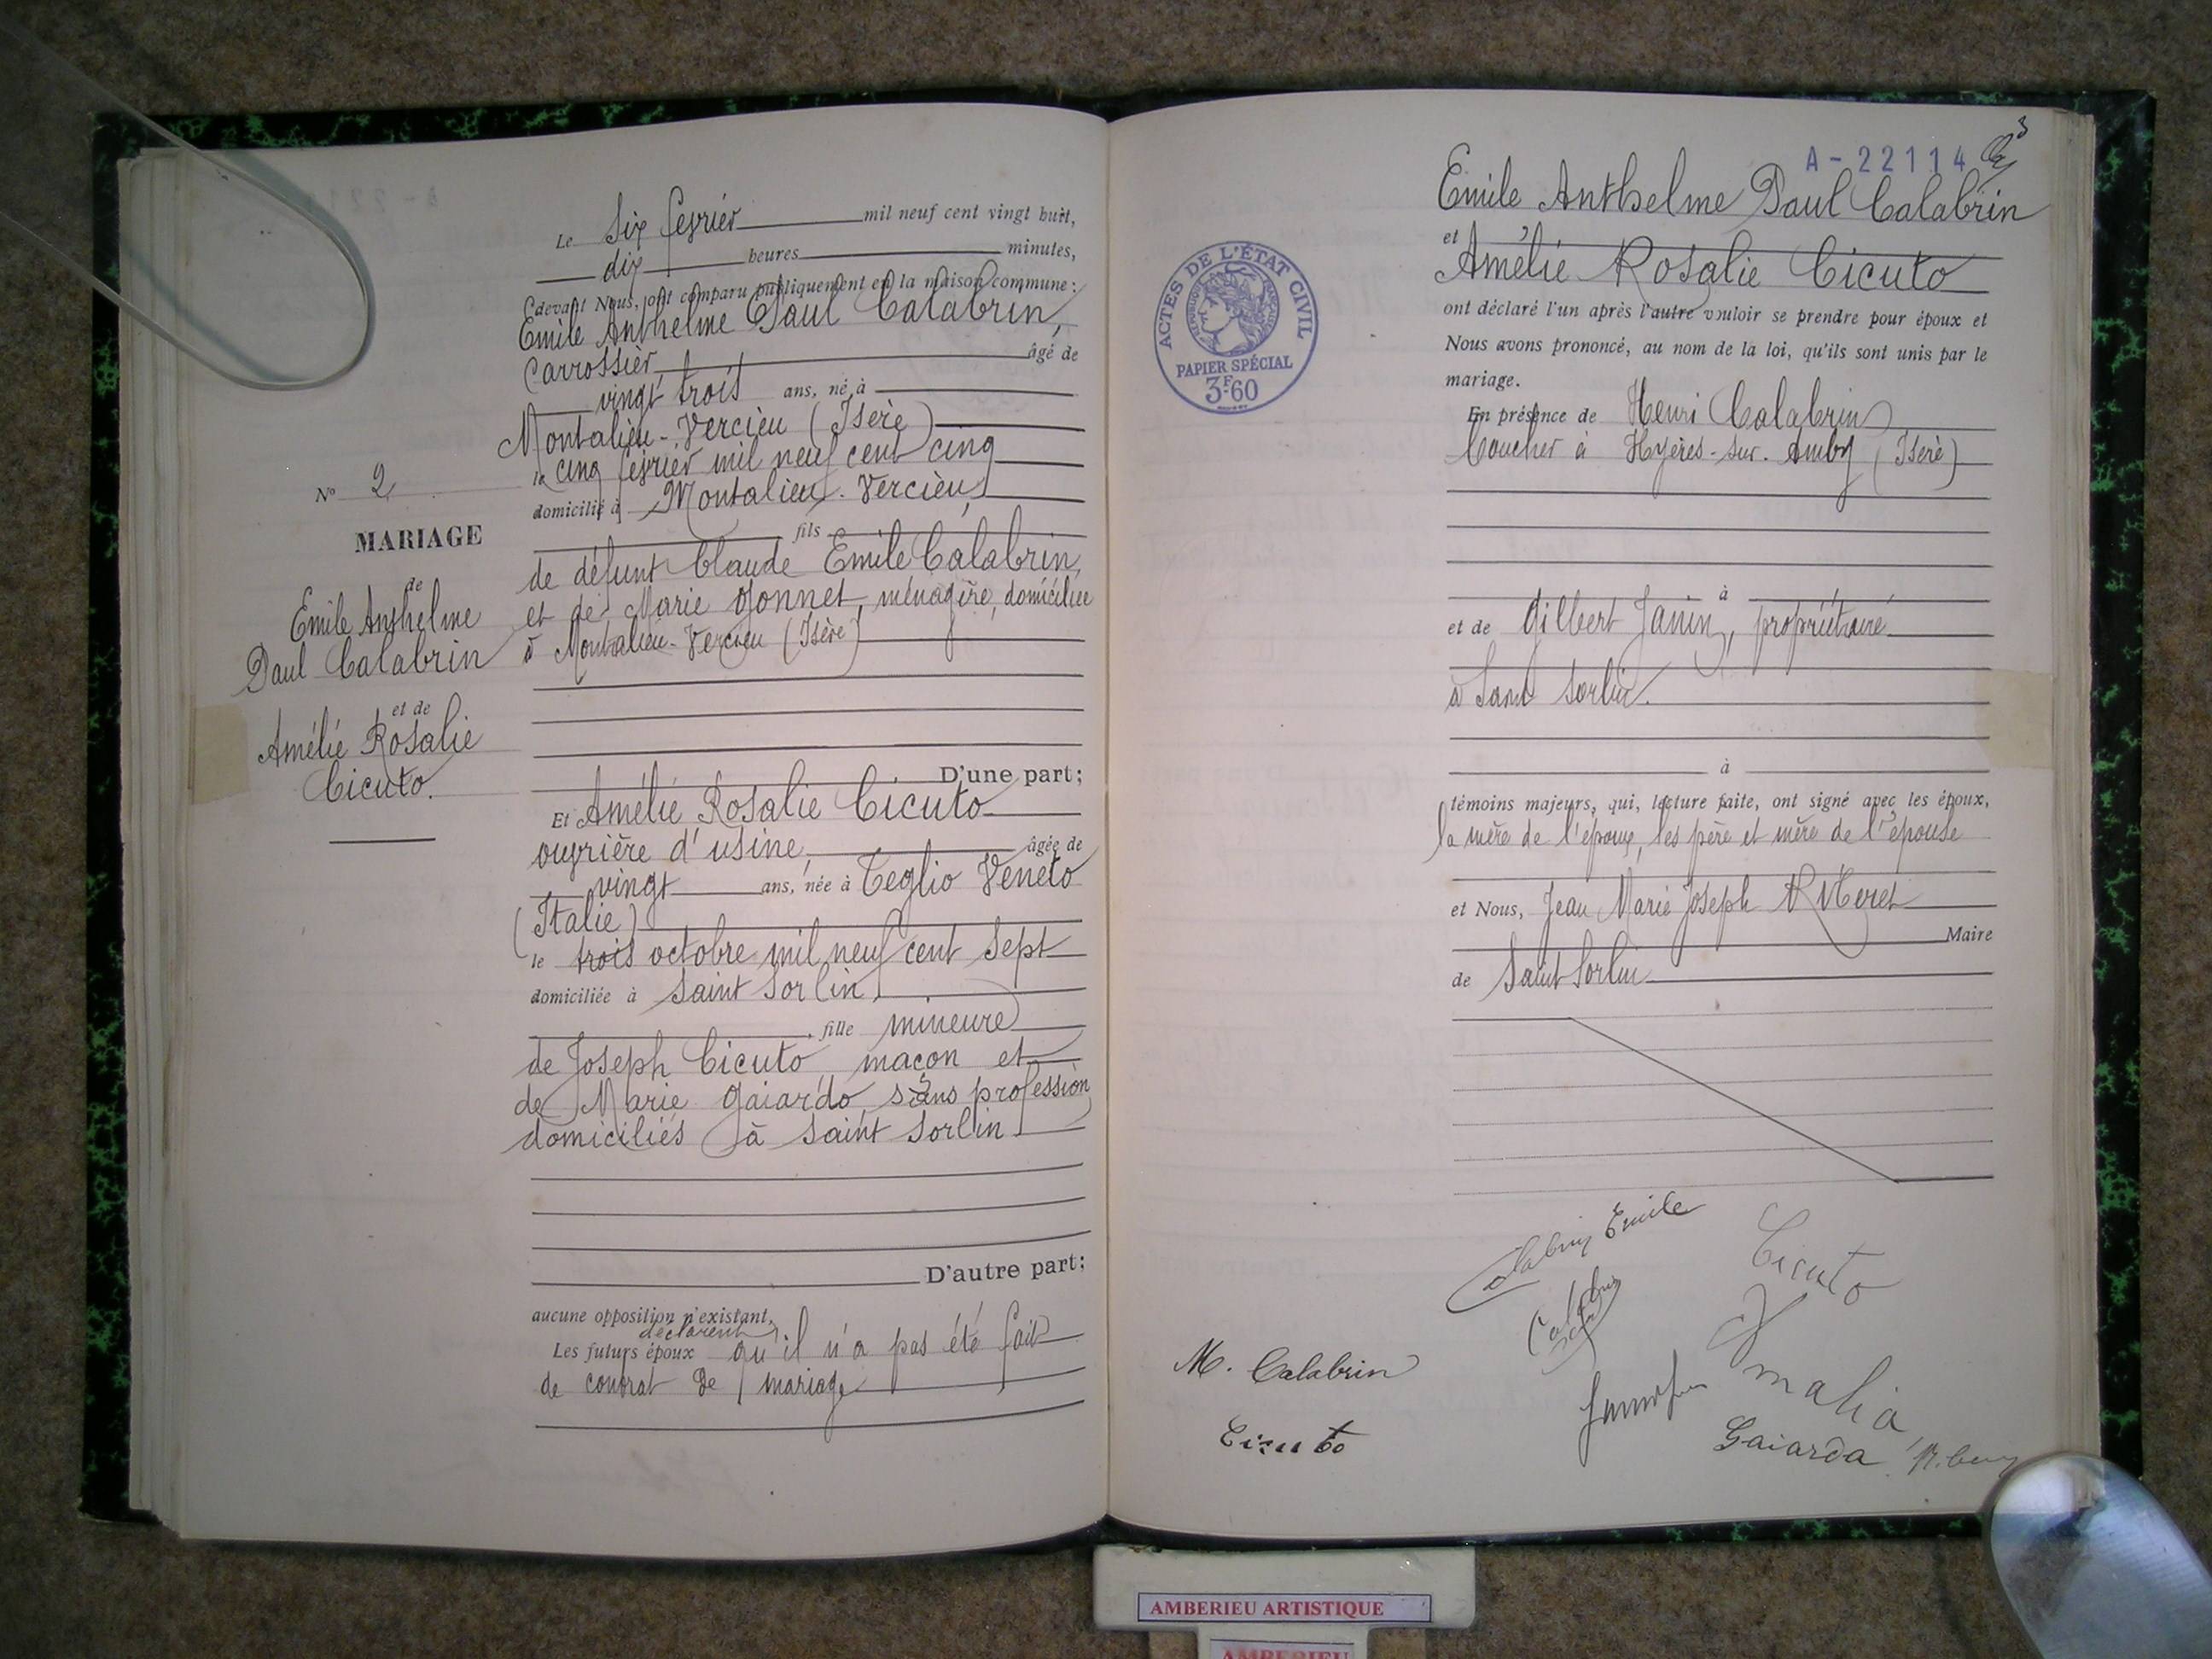 N° 2
MARIAGE
de
Emile Anthelme
Paul Calabrin
et de
Amélie Rosalie
Cicuto.
Le six février mil neuf cent vingt huit,
dix heures minutes,
devant Nous, ont comparu publiquement en la maison commune :
Emile Anthelme Paul Calabrin,
Carrossier, âgé de
vingt trois ans, né à
Montalieu-Vercieu (Isère)
le cinq février mil neuf cent cinq
domicilié à Montalieu-Vercieu,
fils
de défunt Claude Emile Calabrin,
et de Marie Gonnet, ménagère, domiciliée
à Montalieu-Vercieu (Isère)
D'une part;
Et Amélie Rosalie Cicuto
ouvrière d'usine, âgée de
vingt ans, née à Teglio Veneto
(Italie)
le trois octobre mil neuf cent sept
domiciliée à Saint Sorlin,
fille mineure
de Joseph Cicuto maçon et
de Marie Gaiardo, sans profession,
domiciliés à Saint Sorlin
D'autre part;
aucune opposition n'existant,
déclarent
Les futurs époux qu'il n'a pas été fait
de contrat de mariage
A-22114
3
Emile Anthelme Paul Calabrin
et
Amélie Rosalie Cicuto
ont déclaré l'un après l'autre vouloir se prendre pour époux et
Nous avons prononcé, au nom de la loi, qu'ils sont unis par le
mariage.
ACTES DE L'ÉTAT CIVIL
PAPIER SPÉCIAL
3F60
En présence de Henri Calabrin
boucher à Hyères-sur-Amby (Isère)
à
et de Gilbert Janin, propriétaire
à Saint Sorlin.
à
témoins majeurs, qui, lecture faite, ont signé avec les époux,
la mère de l'époux, les père et mère de l'épouse
et Nous, Jean Marie Joseph
Maire
de Saint Sorlin
Calabrin Emile
Cicuto
Amalia
M. Calabrin
Cicuto
Gaiarda
AMBERIEU ARTISTIQUE
AMBERIEU